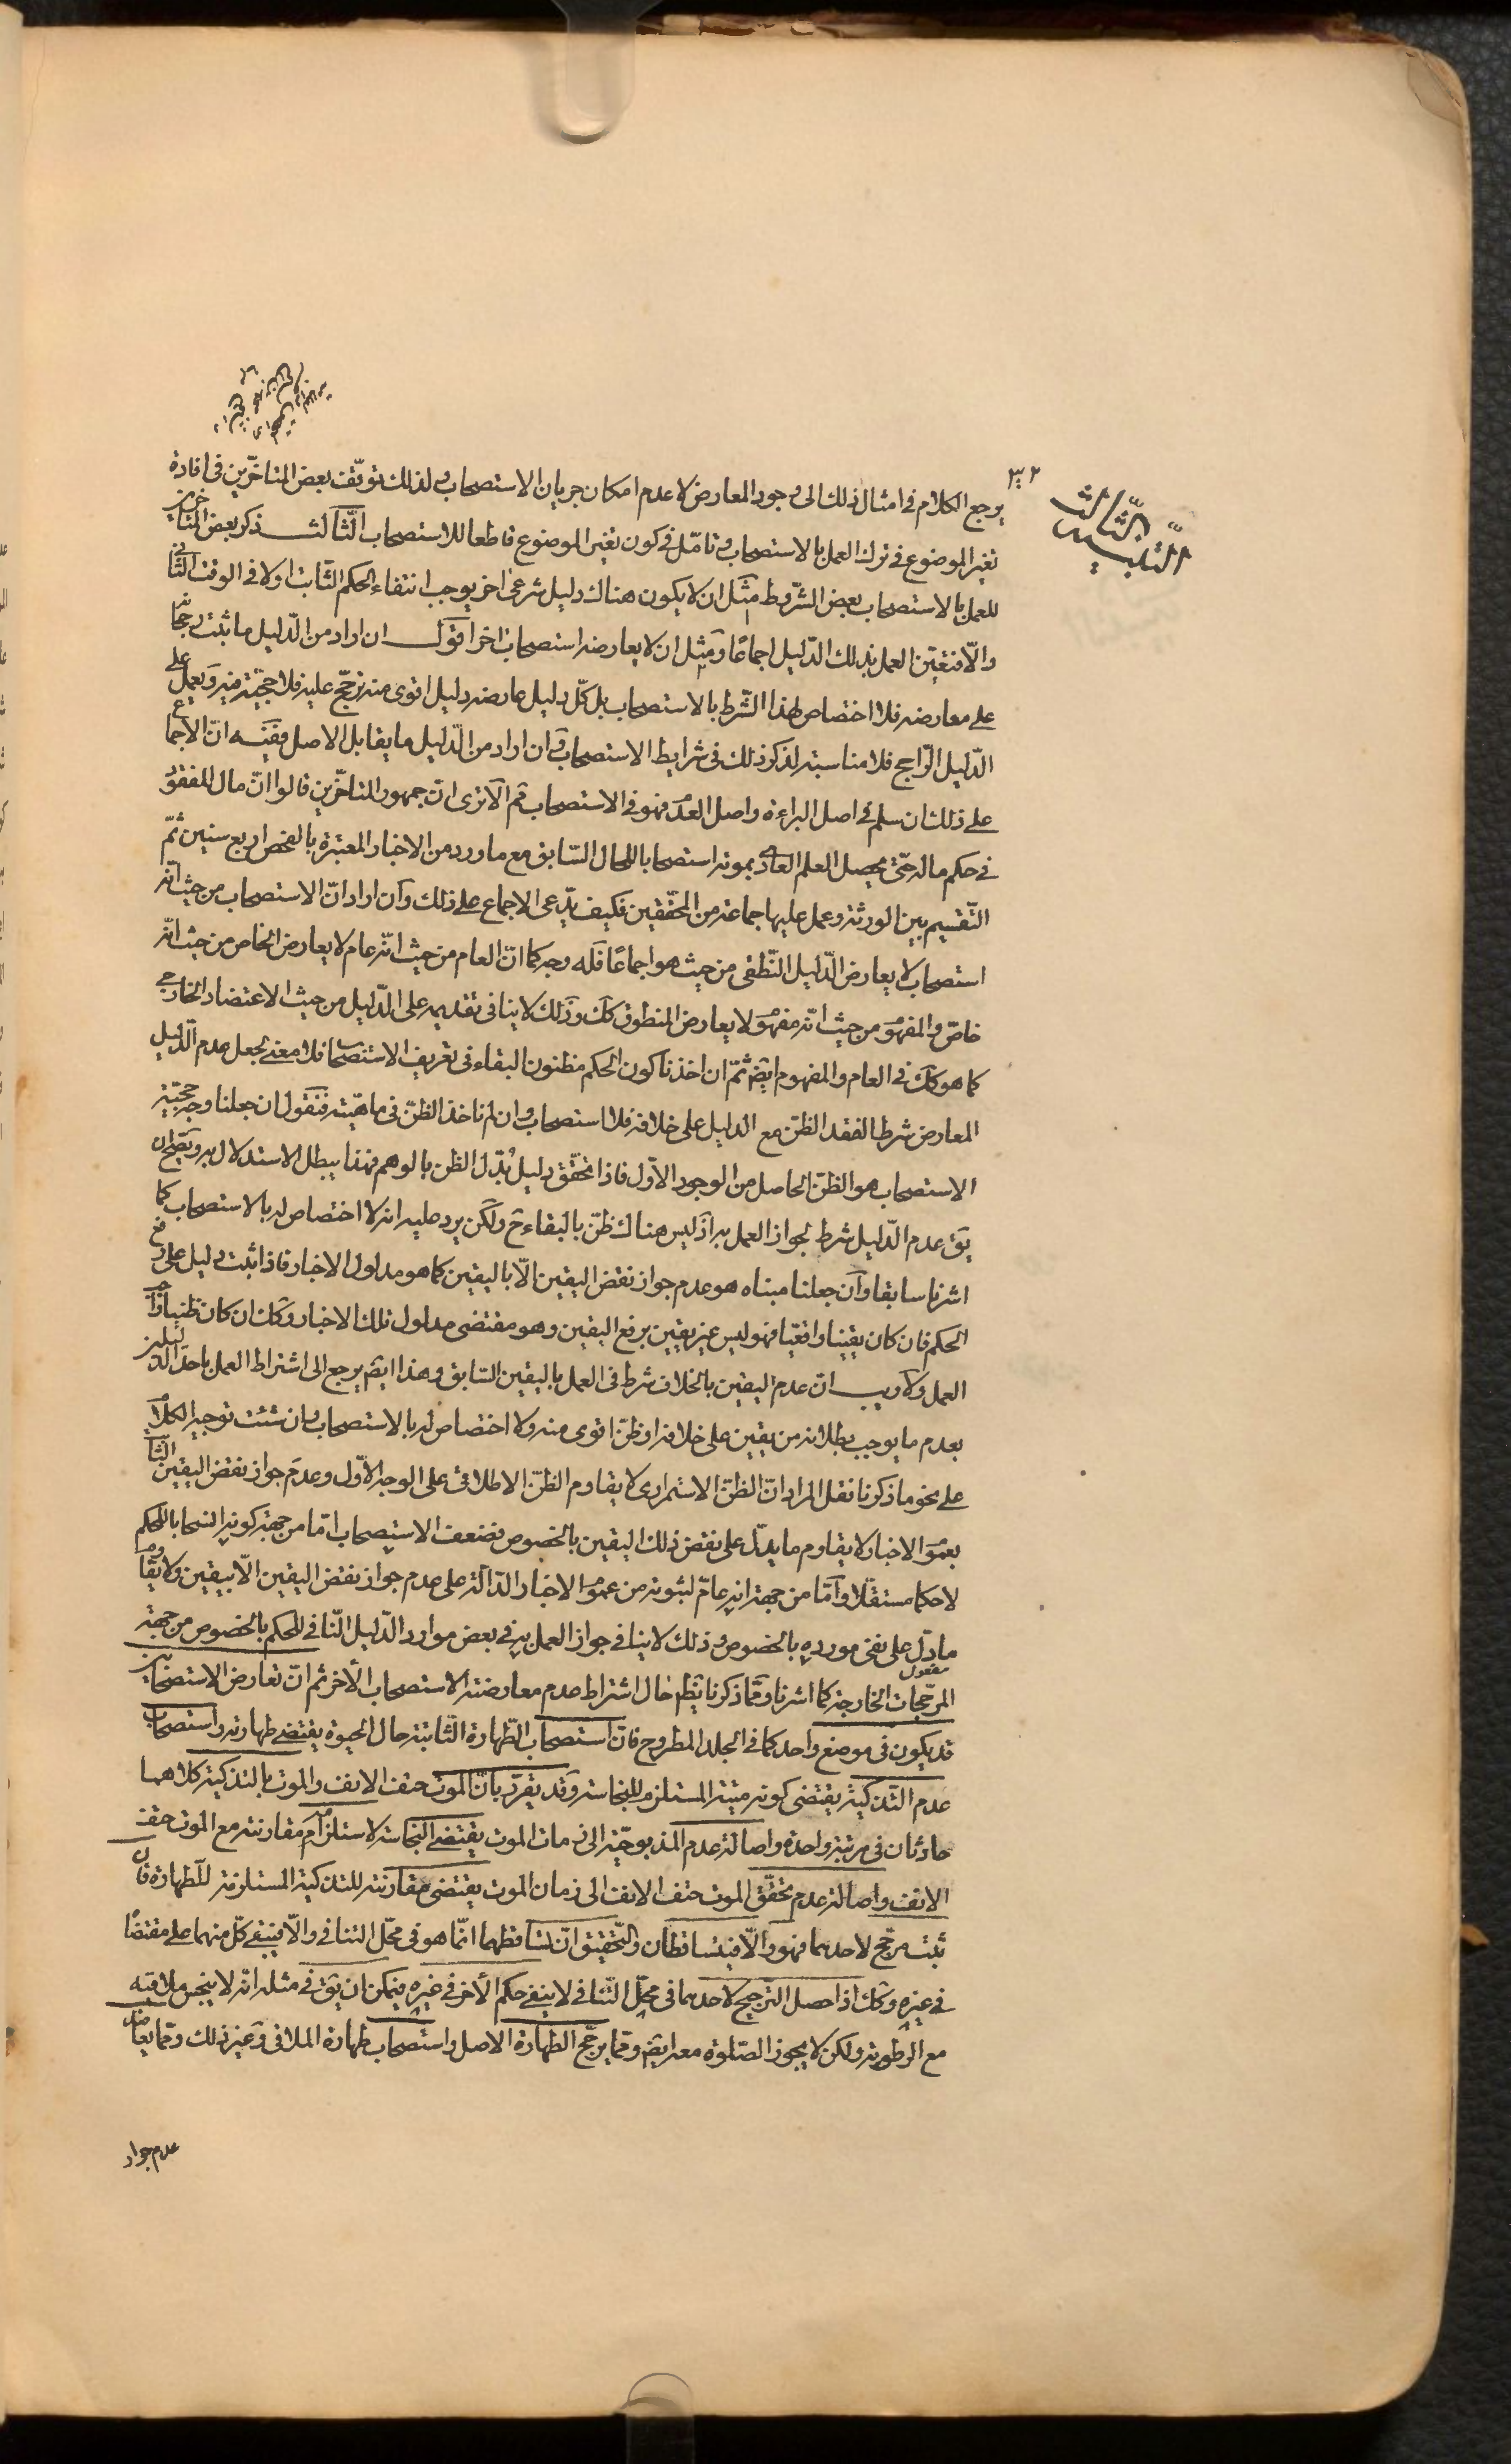 التنبيه الثالث
يرجع الكلام فی امثال ذلك الی وجود المعارض لا عدم امكان جريان الاستصحاب و لذلك توقّف بعض المتاخّرين فی افادة
تغيّر الموضوع فی ترك العمل بالاستصحاب و تامّل فی كون تغيّر الموضوع قاطعا للاستصحاب الثّالث ذكر بعض المتأخرين
للعمل بالاستصحاب بعض الشّروط مثل ان لا يكون هناك دليل شرعیّ اخر يوجب انتفاء الحكم الثّابت اولا فی الوقت الثّانی
والّا فتعيّن العمل بذلك الدّليل اجماعًا و مثل ان لا يعارضه استصحاب اخر اقول ان اراد من الدّليل ما ثبت رجحانه
علی معارضه فلا اختصاص لهذا الشّرط بالاستصحاب بل كلّ دليل عارضه دليل اقوی منه ترجّح عليه فلا حجّيّة فيه و يعمل علی
الدّليل الرّاجح فلا مناسبة لذكر ذلك فی شرايط الاستصحاب و ان اراد من الدّليل ما يقابل الاصل ففيه انّ الاجماع
علی ذلك ان سلم فی اصل البراءة و اصل العدم فهو فی الاستصحاب مم الا تری انّ جمهور المتاخّرين قالوا انّ مال المفقود
فی حكم ماله حتّی يحصل العلم العادی بموته استصحابا للحال السّابق مع ما ورد من الاخبار المعتبرة بالفحص اربع سنين ثمّ
التّقسيم بين الورثة و عمل عليها جماعة من المحقّقين فكيف يدّعی الاجماع علی ذلك و ان اراد انّ الاستصحاب من حيث انّه
استصحاب لا يعارض الدّليل النّطقی من حيث هو اجماعًا فله وجه كما انّ العام من حيث انّه عام لا يعارض الخاص من حيث انّه
خاصّ و المفهوم من حيث انّه مفهوم لا يعارض المنطوق كك و ذلك لا ينافی تقديمه علی الدّليل من حيث الاعتضاد الخارجی
كما هو كك فی العام و المفهوم ايضا ثمّ ان اخذنا كون الحكم مظنون البقاء فی تعريف الاستصحاب فلا معنی لجعل عدم الدّليل
المعارض شرطا لفقد الظنّ مع الدليل علی خلافه فلا استصحاب و ان لم ناخذ الظنّ فی ماهيّته فنقول ان جعلنا وجه حجّيّة
الاستصحاب هو الظنّ الحاصل من الوجود الاوّل فاذا تحقّق دليل بُدّل الظنّ بالوهم فهذا يبطل الاستدلال به و يصحّ ان
يق عدم الدّليل شرط لجواز العمل به اذ ليس هناك ظنّ بالبقاء ح و لكن يرد عليه انه لا اختصاص له بالاستصحاب كما
اشرنا سابقا و ان جعلنا مبناه هو عدم جواز نقض اليقين الّا باليقين كما هو مدلول الاخبار فاذا ثبت دليل علی رفع
الحكم فان كان يقينيا واقعيّا فهو ليس غير يقين يرفع اليقين و هو مقتضی مدلول تلك الاخبار و كك ان كان ظنيا واجب
العمل و لا ريب انّ عدم اليقين بالخلاف شرط فی العمل باليقين السّابق و هذا ايضا يرجع الی اشتراط العمل باحد الدّليلين
بعدم ما يوجب بطلانه من يقين علی خلافه او ظنّ اقوی منه و لا اختصاص له بالاستصحاب و ان شئت توجيه الكلام
علی نحو ما ذكرنا فقل المراد انّ الظنّ الاستمراری لا يقاوم الظنّ الاطلاقی علی الوجه الاوّل و عدم جواز نقض اليقين الثابت
بعموم الاخبار لا يقاوم ما يدلّ علی نقض ذلك اليقين بالخصوص فضعف الاستصحاب امّا من جهة كونه انسحابا للحكم
لا حكما مستقلّا و امّا من جهة انه عامّ لثبوته من عموم الاخبار الدّالّة علی عدم جواز نقض اليقين الّا بيقين و لا يقاوم
ما دلّ علی نفی مورده بالخصوص و ذلك لا ينافی جواز العمل به فی بعض موارد الدّليل النّافی للحكم بالخصوص من جهة
المرجّحات الخارجة كما اشرنا و ممّا ذكرنا يظهر حال اشتراط عدم معارضته الاستصحاب الأخر ثم انّ تعارض الاستصحابين
قد يكون فی موضع واحد كما فی الجلد المطروح فانّ استصحاب الطّهارة الثّابتة حال الحيوة يقتضی طهارته و استصحاب
عدم التّذكية يقتضی كونه ميتة المستلزم للنجاسة و قد يقرّر بانّ الموت حتف الانف و الموت بالتذكية كلاهما
حادثان فی مرتبة واحدة و اصالة عدم المذبوحيّة الی زمان الموت يقتضی النجاسة لاستلزامه مقارنته مع الموت حتف
الانف و اصالة عدم تحقّق الموت حتف الانف الی زمان الموت يقتضی مقارنته للتذكية المستلزمة للطّهارة فان
ثبت مرجّح لاحدهما فهو و الّا فيتساقطان و التّحقيق انّ تساقطهما انّما هو فی محلّ التنافی و الّا فيبقی كلّ منهما علی مقتضاه
فی غيره و كك اذا حصل التّرجيح لاحدهما فی محلّ التّنافی لا ينفی حكم الأخر فی غيره فيمكن ان يق فی مثله انّه لا ينجس ملاقيه
مع الرطوبة و لكن لا يجوز الصّلوة معه ايضا و ممّا يرجّح الطهارة الاصل و استصحاب طهارة الملاقی و غير ذلك و ممّا يعاضد
عدم جواز